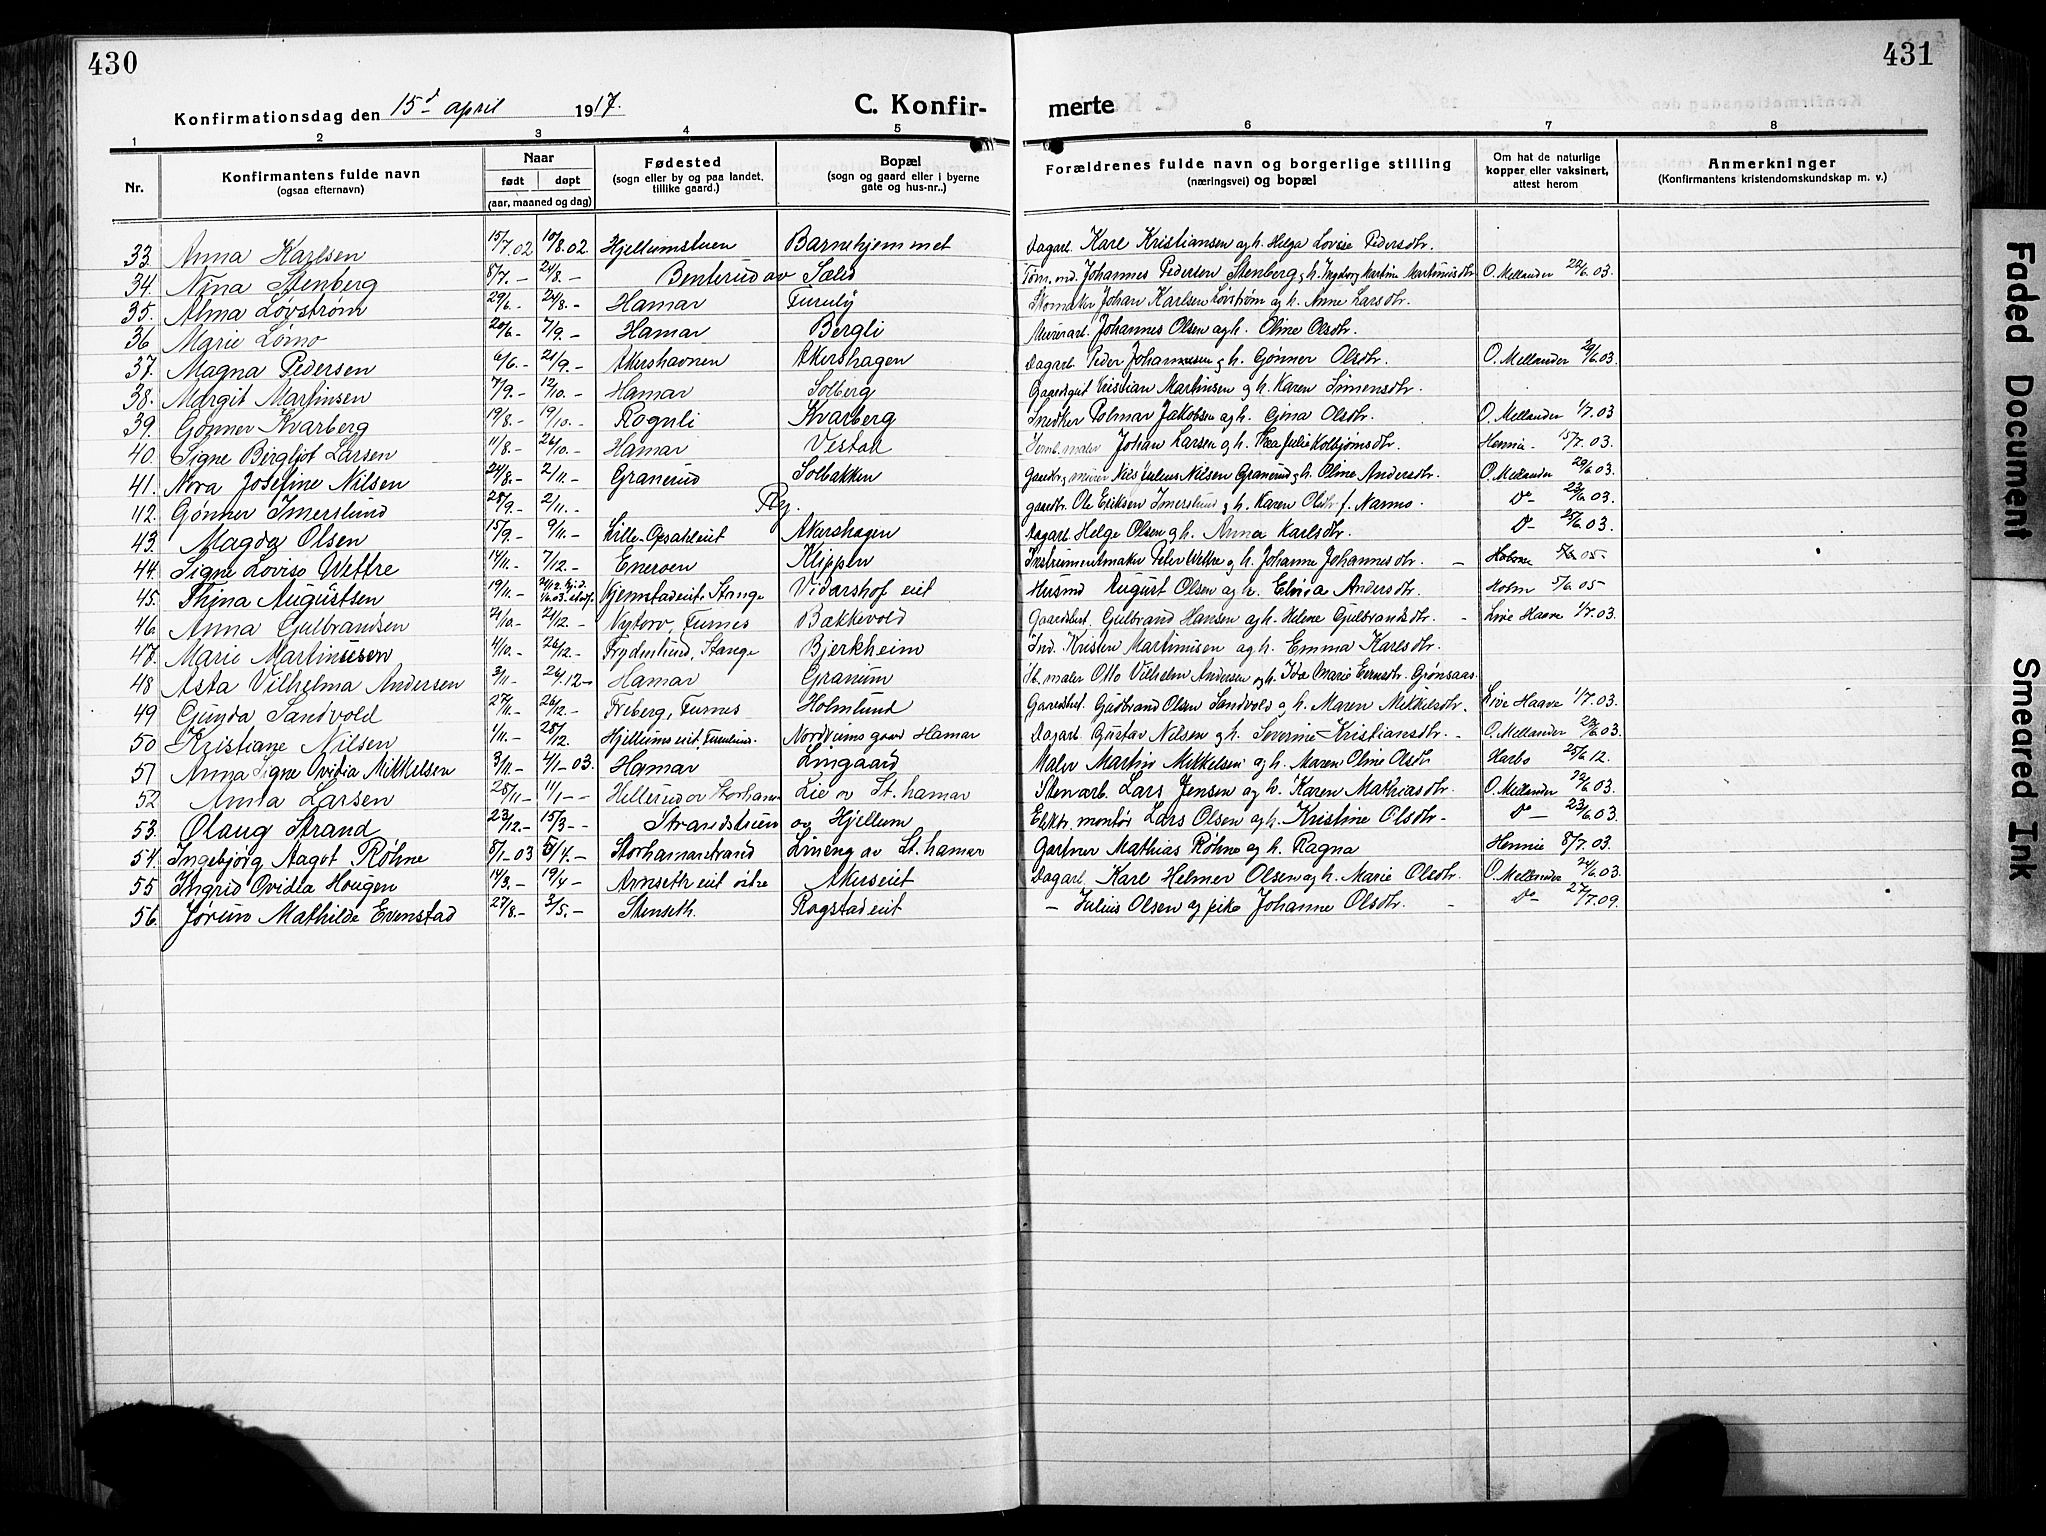 430
431
Konfirmationsdag den 15d april 1917.
C. Konfir-
merte
1 2 3 4 5 6 7 8
Nr.
Konfirmantens fulde navn
(ogsaa efternavn)
Naar
født døpt
(aar, maaned og dag)
Fødested
(sogn eller by og paa landet, tillike gaard.)
Bopæl
(sogn og gaard eller i byerne gate og hus-nr..)
Forældrenes fulde navn og borgerlige stilling
(næringsvei) og bopæl
Om hat de naturlige kopper eller vaksinert, attest herom
Anmerkninger
(Konfirmantens kristendomskundskap m. v.)
33. Anna Karlsen 15/7.02 10/8.02 Hjellumstuen Barnehjemmet Dagarb. Karl Kristiansen og h. Helga Lovise Pedersdtr.
34. Nina Stenberg 8/7.- 24/8.- Benterud av Sælid Tøm.md. Johannes Pedersen Stenberg og h. Ingeborg Martine Martinusdtr. O. Mellander 20/6.03.
35. Alma Løvstrøm 29/6.- 24/8.- Hamar Furuly Skomaker Johan Karlsen Løvstrøm og h. Anne Larsdtr.
36 Marie Lømo 20/6.- 7/9.- Hamar Bergli Murerarb. Johannes Olsen og h. Oline Olsdtr.
37. Magna Pedersen 6/6.- 21/9.- Akershavnen Akershagen Dagarb. Peder Johannesen og h. Gønner Olsdtr. O. Mellander 29/6.03.
38. Margit Martinsen 7/9.- 12/10.- Hamar Solberg Gaardbest Kristian Martinsen og h. Karen Simensdtr.
39. Gønner Kvarberg 19/8.- 19/10.- Rognli Kvarberg Snedker Polmar Jakobsen og h. Gina Olsdtr. O. Mellander 1/7.03
40. Signe Bergljot Larsen 11/8.- 26/10.- Hamar Vestad maler Johan Larsen og h. Thea Julie Kolbjørnsdtr. Hennie - 15/7.03.
41. Nora Josefine Nilsen 24/8.- 2/11.- Granerud Solbakken Gaardbr. og murer Nils Julius Nilsen Granerud og h. Oline Andersdtr. O. Mellander 20/6.03.
42. Gønner Imerslund 28/9.- 2/11.- Ry. gaardbr. Ole Eriksen Imerslund og h. Karen Olsdtr f. Narmo. Do 23/6.03.
43. Magda Olsen 15/9.- 9/11.- Lille-Opsahleiet Akershagen Dagarb. Helge Olsen og h. Anna Karlsdtr. Do 25/6.03.
44. Signe Lovise Wettre 14/11.- 7/12.- Eneroen Klippen Instrumentmaker Peter Wettre og h. Johanne Johannesdtr. - Holme 5/6.05-
45. Thina Augustsen 19/11.- Kjemstadeiet, Stange Vidarshof eiet Husmd August Olsen og h. Elvia Andersdtr. Holm 5/6.05
46. Anna Gulbrandsen 21/10.- 21/12.- Nytorv, Furnes Bakkevold Gaardbest. Gulbrand Hansen og h. Helene Gulbrandsdtr. - Live Haave 1/7.03.
47. Marie Martinussen 4/10.- 26/12.- Frydenlund, Stange Bjerkheim Ind. Kristen Martinusen og h. Emma Karlsdtr.
48 Asta Vilhelma Andersen 3/11.- 26/12- Hamar Granum maler Otto Vilhelm Andersen og h. Ida Marie Evensdtr. Grønsaas.
49 Gunda Sandvold 27/11.- 26/12.- Freberg, Furnes Holmlund Gaardbest. Gudbrand Olsen Sandvold og h. Maren Mikkelsdtr. Live Haave 1/7.03.
50 Kristiane Nilsen 1/11.- 28/12. Hjellums eiet, Furulund. Nordviens gaard Hamar Dagarb. Gustav Nilsen og h. Severine Kristiansdtr. - O. Mellander 20/6.03.
51 Anna Signe Ovidia Mikkelsen 3/11.- 4/1-03. Hamar Lingaard Maler Martin Mikkelsen og h. Maren Oline Olsdtr Harbo 25/6.12.
52 Anna Larsen 28/11- 11/1-- Hellerud ov Storhamar Lie ov St. hamar Stenarb. Lars Jensen og h. Karen Mathiasdtr. O. Mellander 22/6.03.
53. Olaug Strand 23/12.- 15/3-- Strandstuen ov Hjellum Elektr. montør Lars Olsen og h. Kristine Olsdtr- Do - 23/6.03.
54. Ingebjørg Aagot Røhne 8/1-03 5/4.- Storhamarstrand Lineng av St. hamar Gartner Mathias Røhne og h. Ragna Hennie 8/7.03.
55 Ingrid Ovidia Hougen 14/3.- 19/4- Arnseth eiet østre Akerseiet Dagarb. Karl Helmer Olsen og h. Marie Olsdtr. O. Mellander 24/6.03.
56. Jørun Mathilde Evenstad 27/8.- 3/5.- Stenseth. Rogstadeiet - Julius Olsen og pike Johanne Olsdtr. - Do 27/7.09.
Faded Document
Smeared Ink